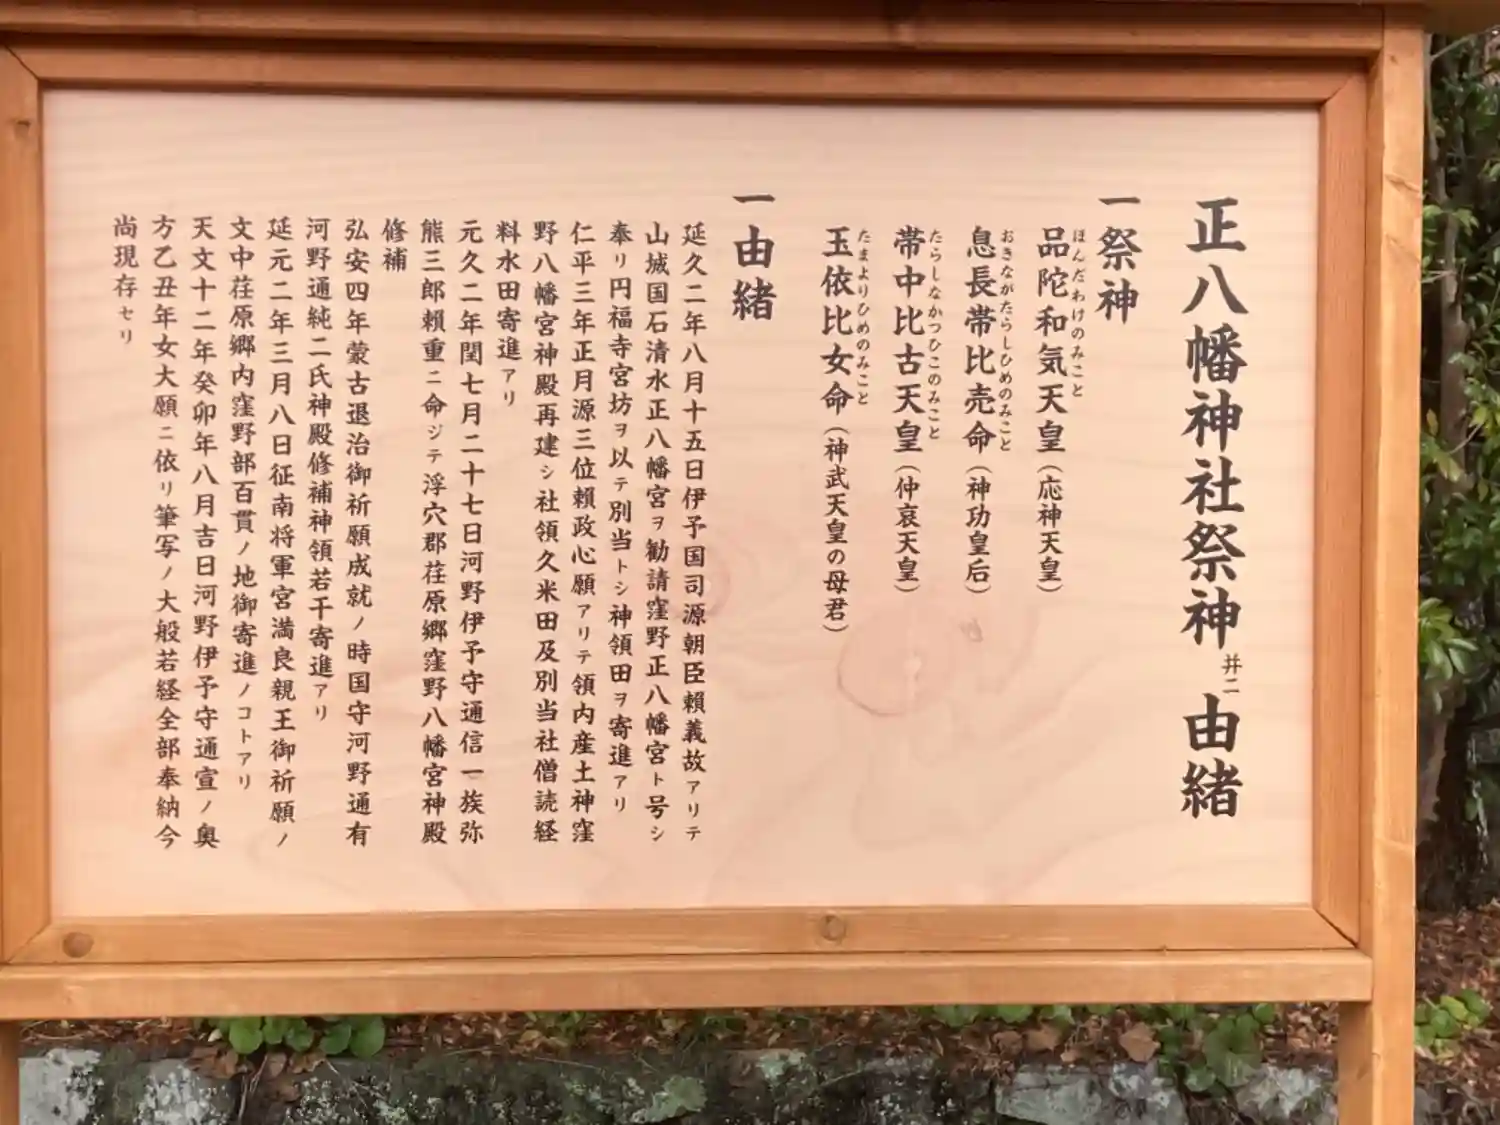 正八幡神社祭神并ニ由緒
一祭神
品陀和気天皇（応神天皇）
ほんだわけのみこと
息長帯比売命（神功皇后）
おきながたらしひめのみこと
帯中比古天皇（仲哀天皇）
たらしなかつひこのみこと
玉依比女命（神武天皇の母君）
たまよりひめのみこと
一由緒
延久二年八月十五日伊予国司源朝臣頼義故アリテ
山城国石清水正八幡宮ヲ勧請窪野正八幡宮ト号シ
奉リ円福寺宮坊ヲ以テ別当トシ神領田ヲ寄進アリ
仁平三年正月源三位頼政心願アリテ領内産土神窪
野八幡宮神殿再建シ社領久米田及別当社僧読経
料水田寄進アリ
元久二年閏七月二十七日河野伊予守通信一族弥
熊三郎頼重ニ命ジテ浮穴郡荏原郷窪野八幡宮神殿
修補
弘安四年蒙古退治御祈願成就ノ時国守河野通有
河野通純二氏神殿修補神領若干寄進アリ
延元二年三月八日征南将軍宮満良親王御祈願ノ
文中荏原郷内窪野部百貫ノ地御寄進ノコトアリ
天文十二年癸卯年八月吉日河野伊予守通宣ノ奥
方乙丑年女大願ニ依リ筆写ノ大般若経全部奉納今
尚現存セリ